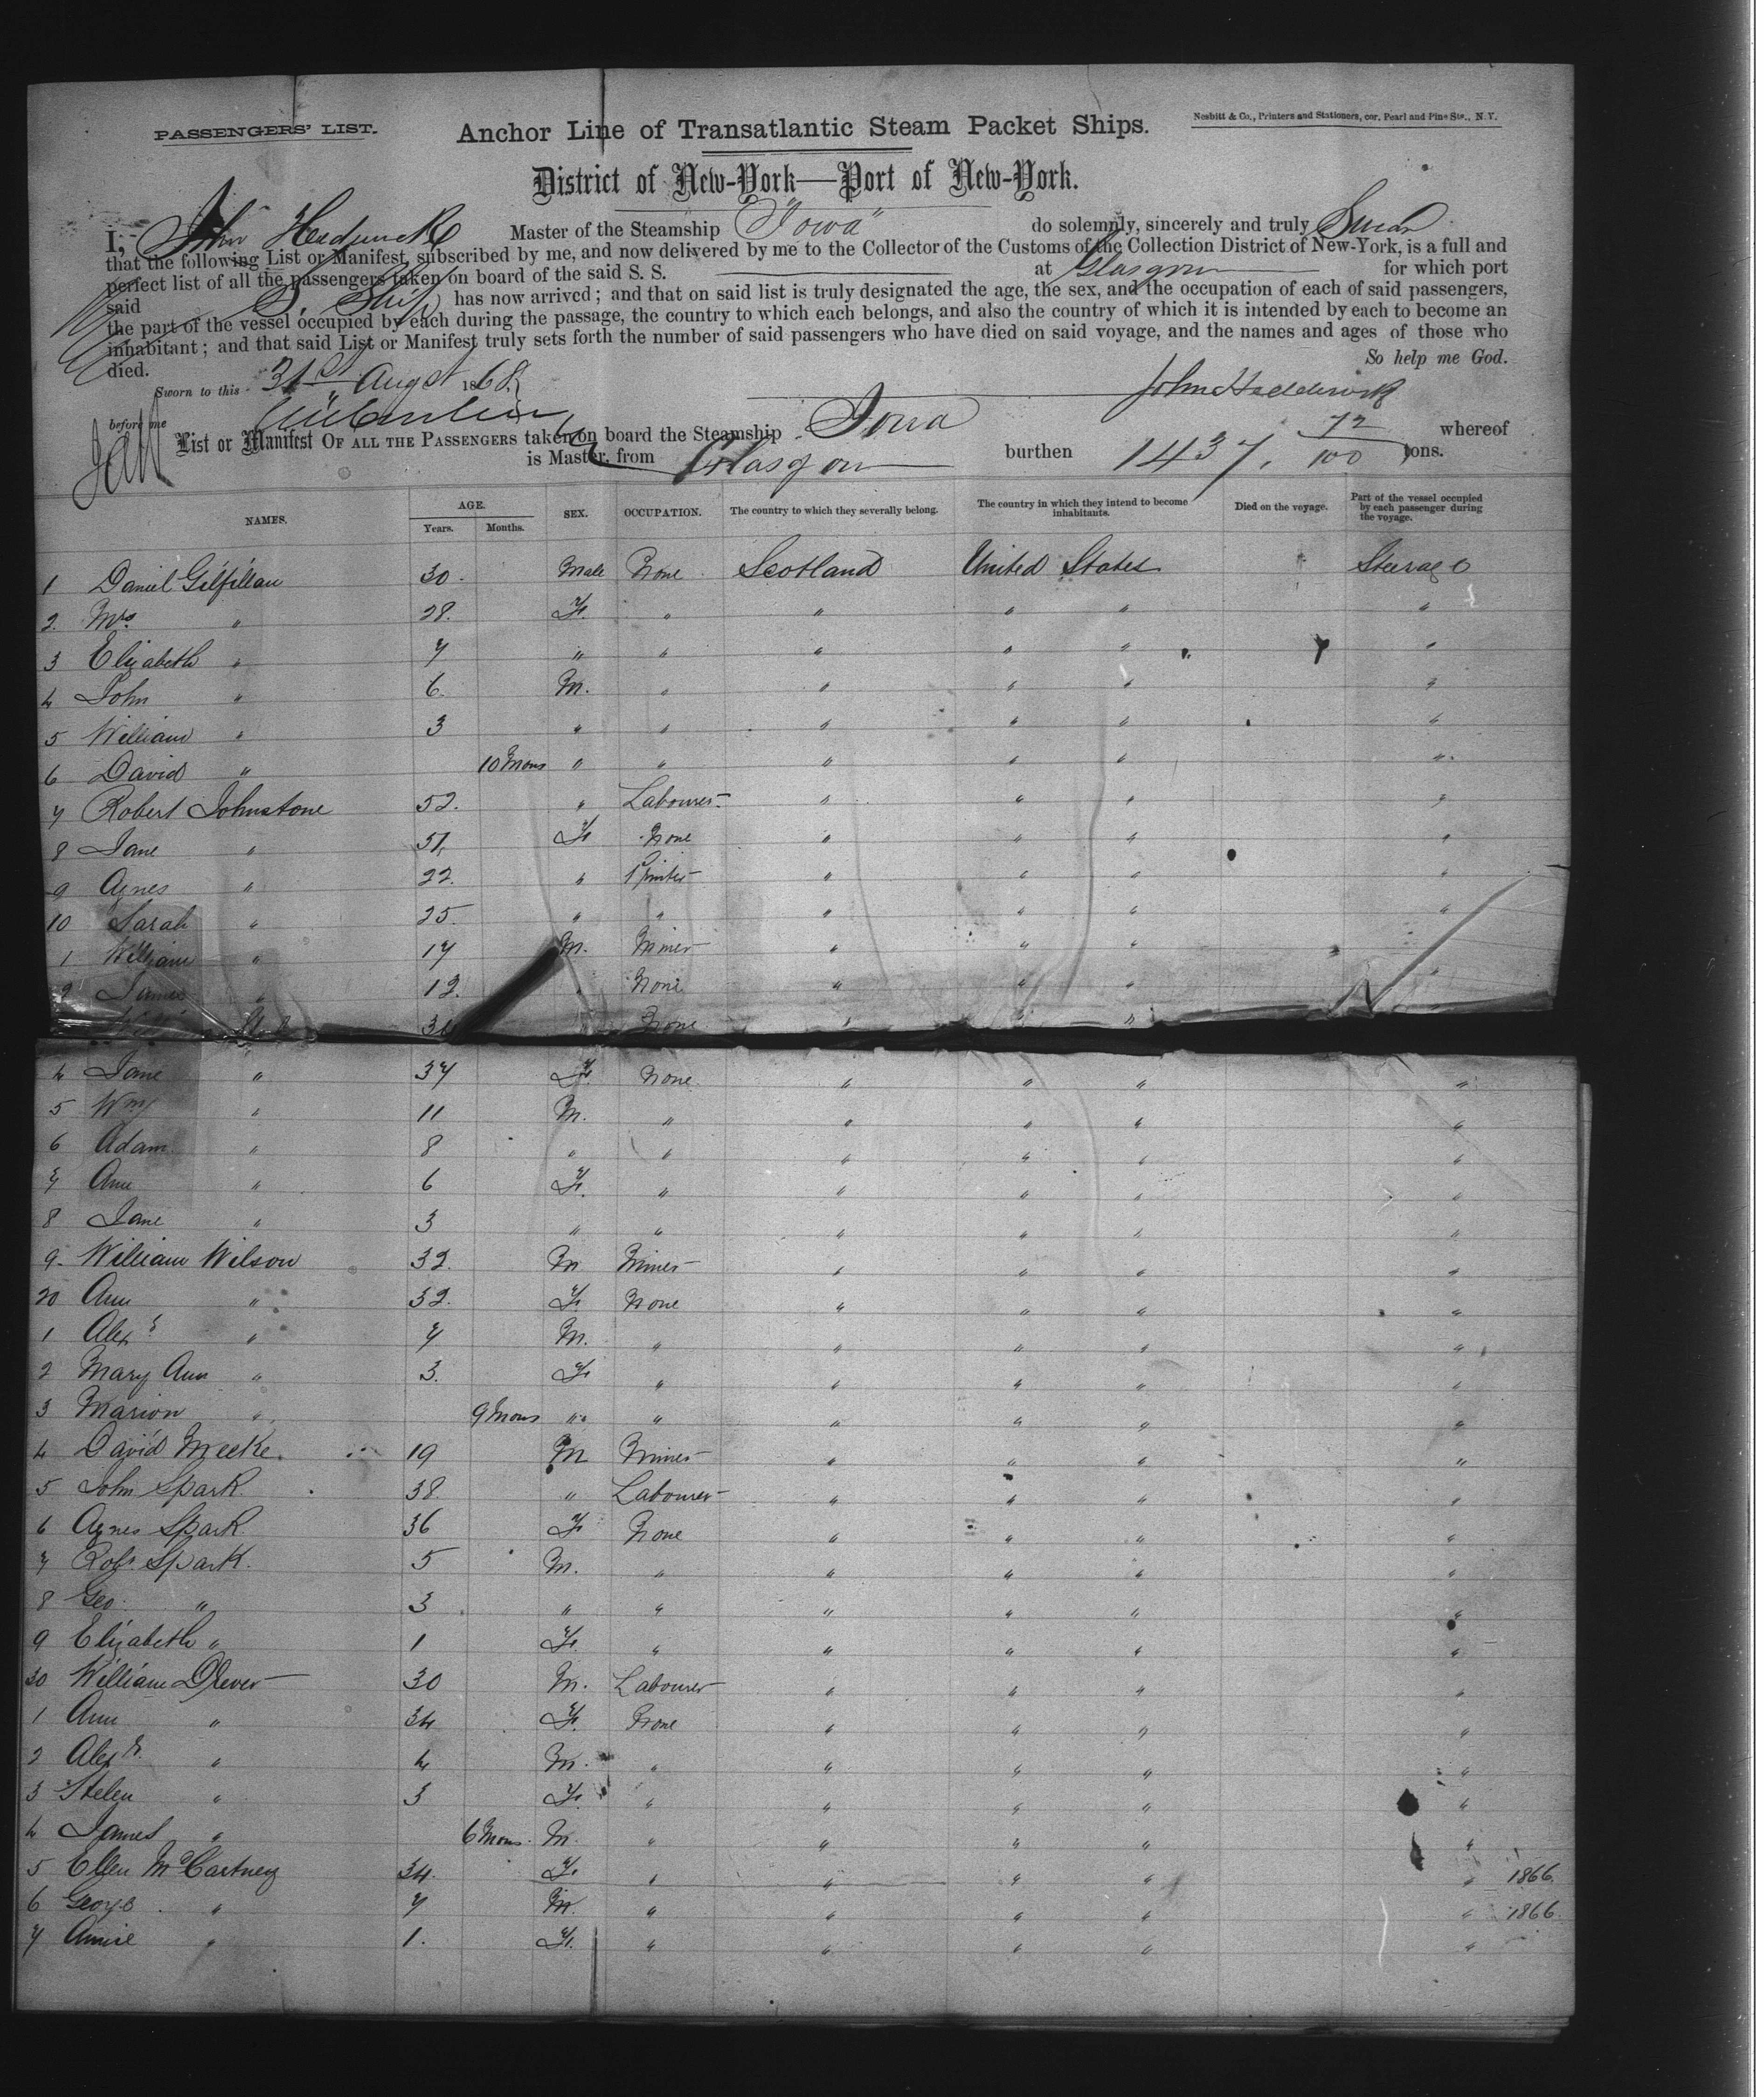 PASSENGERS' LIST.
Anchor Line of Transatlantic Steam Packet Ships.
Nesbitt & Co., Printers and Stationers, cor. Pearl and Pine Sts., N.Y.
District of New-York—Port of New-York.
I, John Hedderwick Master of the Steamship "Iowa" do solemnly, sincerely and truly Swear
that the following List or Manifest, subscribed by me, and now delivered by me to the Collector of the Customs of the Collection District of New-York, is a full and
perfect list of all the passengers taken on board of the said S. S. at Glasgow for which port
said S. Ship has now arrived; and that on said list is truly designated the age, the sex, and the occupation of each of said passengers,
the part of the vessel occupied by each during the passage, the country to which each belongs, and also the country of which it is intended by each to become an
inhabitant; and that said List or Manifest truly sets forth the number of said passengers who have died on said voyage, and the names and ages of those who
died. So help me God.
Sworn to this 31st Augst 1868 John Hedderwick
before me
List or Manifest OF ALL THE PASSENGERS taken on board the Steamship Iowa whereof
is Master, from Glasgow burthen 1437. 72/100 tons.
NAMES. AGE. Years. Months. SEX. OCCUPATION. The country to which they severally belong. The country in which they intend to become inhabitants. Died on the voyage. Part of the vessel occupied by each passenger during the voyage.
1 Daniel Gilfillan 30. Male None Scotland United States Steerage
2. Mrs " 28. F. " " " " "
3 Elizabeth " 7 " " " " " "
4 John " 6. M. " " " " "
5 William " 3 " " " " " "
6 David " 10 Mons " " " " " "
7 Robert Johnstone 52. " Labourer " " " "
8 Jane " 51, F None " " " "
9 Agnes " 22. " Spinster " " " "
10 Sarah " 25. " " " " " "
1 William " 17 M. Miner " " " "
2 James " 12. " None " " " "
None " "
4 Jane " 37 F. None " " " "
5 Wm " 11 M. " " " " "
6 Adam " 8 " " " " " "
7 Ann " 6 F. " " " " "
8 Jane " 3 " " " " " "
9. William Wilson 32. M Miner " " " "
20 Ann " 32. F. None " " " "
1 Alexr " 7 M. " " " " "
2 Mary Ann " 3. F " " " " "
3 Marion " 9 Mons " " " " " "
4 David Meeke. 19 M Miner " " " "
5 John Spark 38. " Labourer " " " "
6 Agnes Spark 36 F None " " " "
7 Robt. Spark. 5 M. " " " " "
8 Geo. " 3 " " " " " "
9 Elizabeth " 1 F. " " " " "
30 William Drever 30 M. Labourer " " " "
1 Ann " 34 F. None " " " "
2 Alexr. " 4 M. " " " " "
3 Helen " 3 F. " " " " "
4 James " 6 Mons. M. " " " " "
5 Ellen McCartney 34. F. " " " " " 1866.
6 George " 7 M. " " " " " 1866.
7 Annie " 1. F. " " " " "